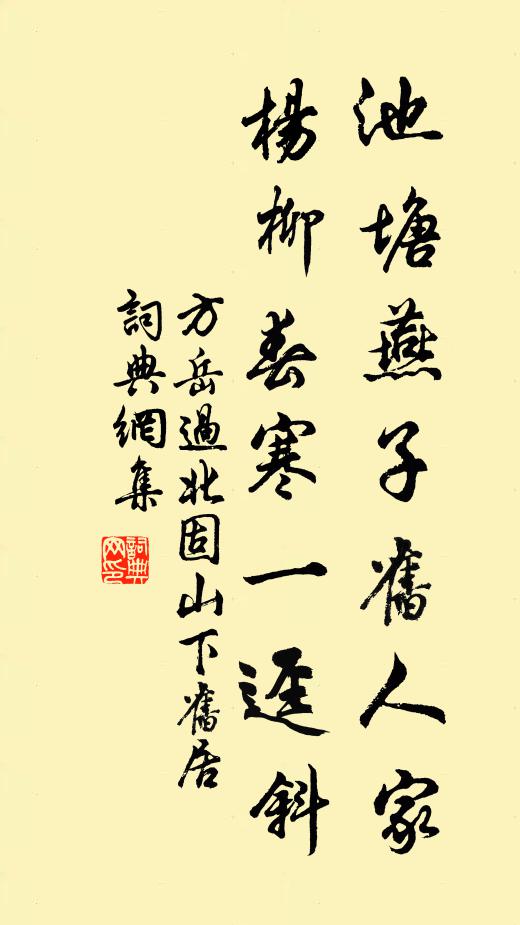 池塘燕子舊人家
楊柳春寒一逕斜
方岳過北固山下舊居
詞典網集
詞典網印